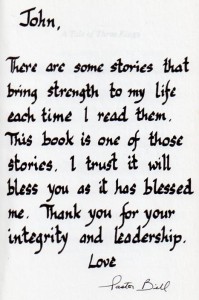 John,
There are some stories that
bring strength to my life
each time I read them.
This book is one of those
stories. I trust it will
bless you as it has blessed
me. Thank you for your
integrity and leadership.
Love
Pastor Bill